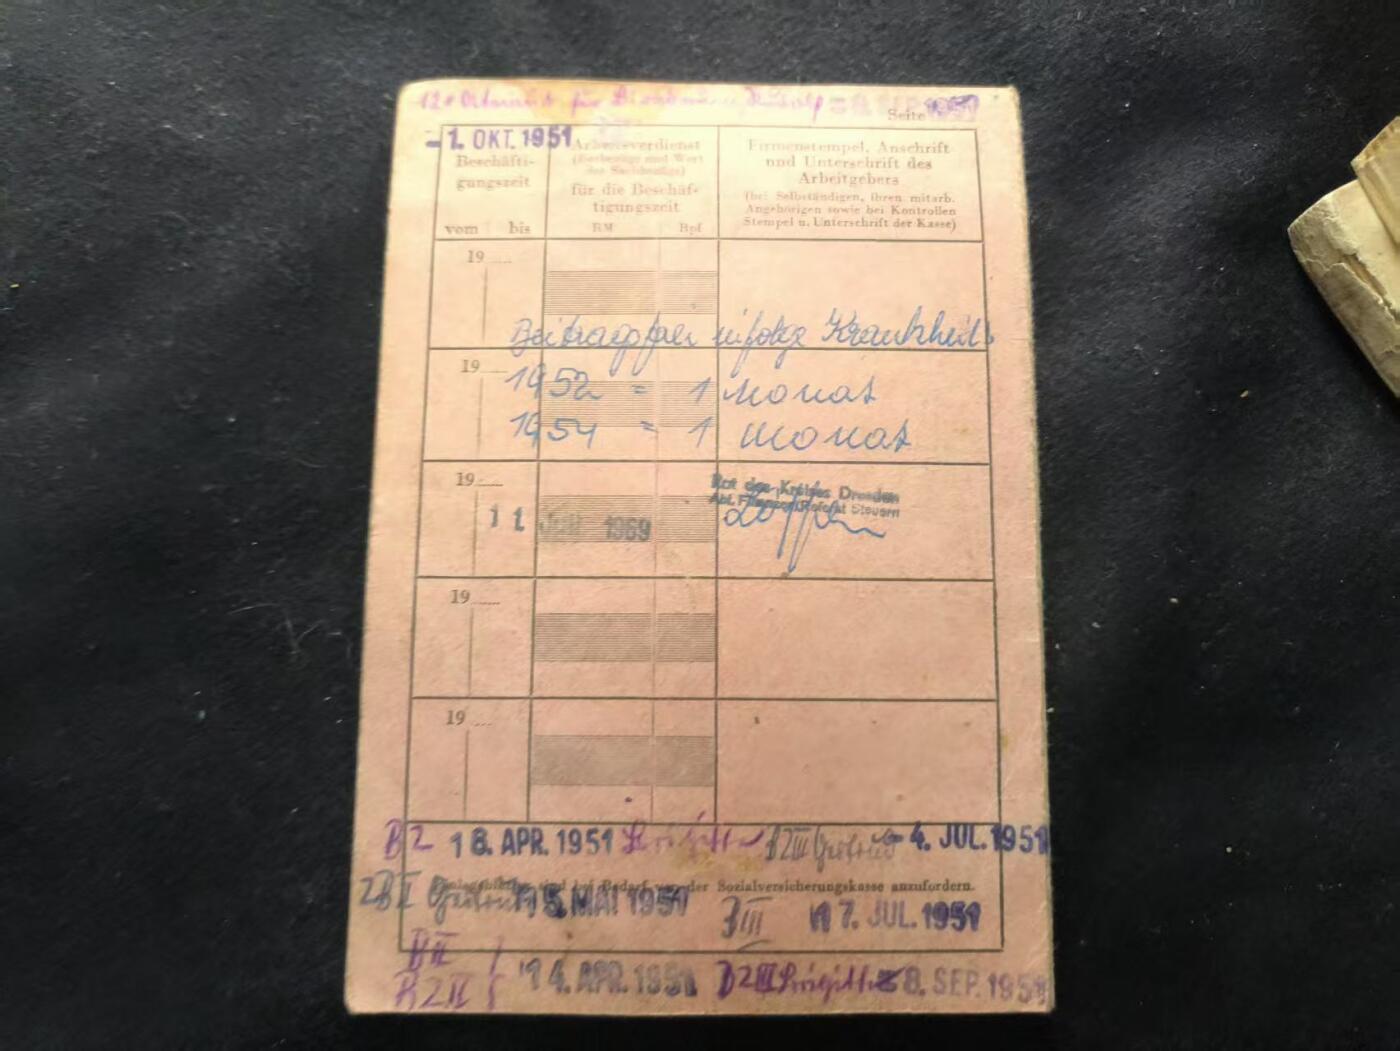 für
Seite
- 1. OKT. 1951
Beschäfti-
gungszeit
vom bis
Arbeitsverdienst
(Barbezüge und Wert
der Sachbezüge)
für die Beschäf-
tigungszeit
RM Rpf
Firmenstempel, Anschrift
und Unterschrift des
Arbeitgebers
(bei Selbständigen, ihren mitarb.
Angehörigen sowie bei Kontrollen
Stempel u. Unterschrift der Kasse)
19 .....
Beitragsfrei infolge Krankheit
19 .....
1952 = 1 Monat
1954 = 1 Monat
19 .....
Rat des Kreises Dresden
Abt. Finanzen/Referat Steuern
1 1. 1969
19 .....
19 .....
B2 18. APR. 1951 Brigitte B2III Gertrud - 4. JUL. 1951
Einlageblätter sind bei Bedarf von der Sozialversicherungskasse anzufordern.
Gertrud 15. MAI 1951
BIII 17. JUL. 1951
BII
B2II 14. APR. 1951 B2III Brigitte - 8. SEP. 1951